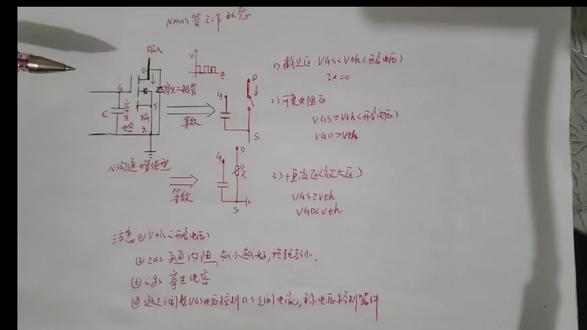 NMOS管工作状态
输入
V
t
D
G
S
C
寄生二极管
寄生电容
输出
等效
G
D
S
1) 截止区 VGS<Vth(开启电压)
Id=0
2) 可变电阻区
VGS≥Vth(开启电压)
VGD>Vth
N沟道增强型
等效
G
D
S
3) 恒流区(放大区)
VGS≥Vth
VGD<Vth
注意 ① Vth(开启电压)
② 导通内阻,越小越好,损耗越小。
③ Cgs 寄生电容
④ 通过调整VGS电压控制D.S之间电流,称电压控制器件